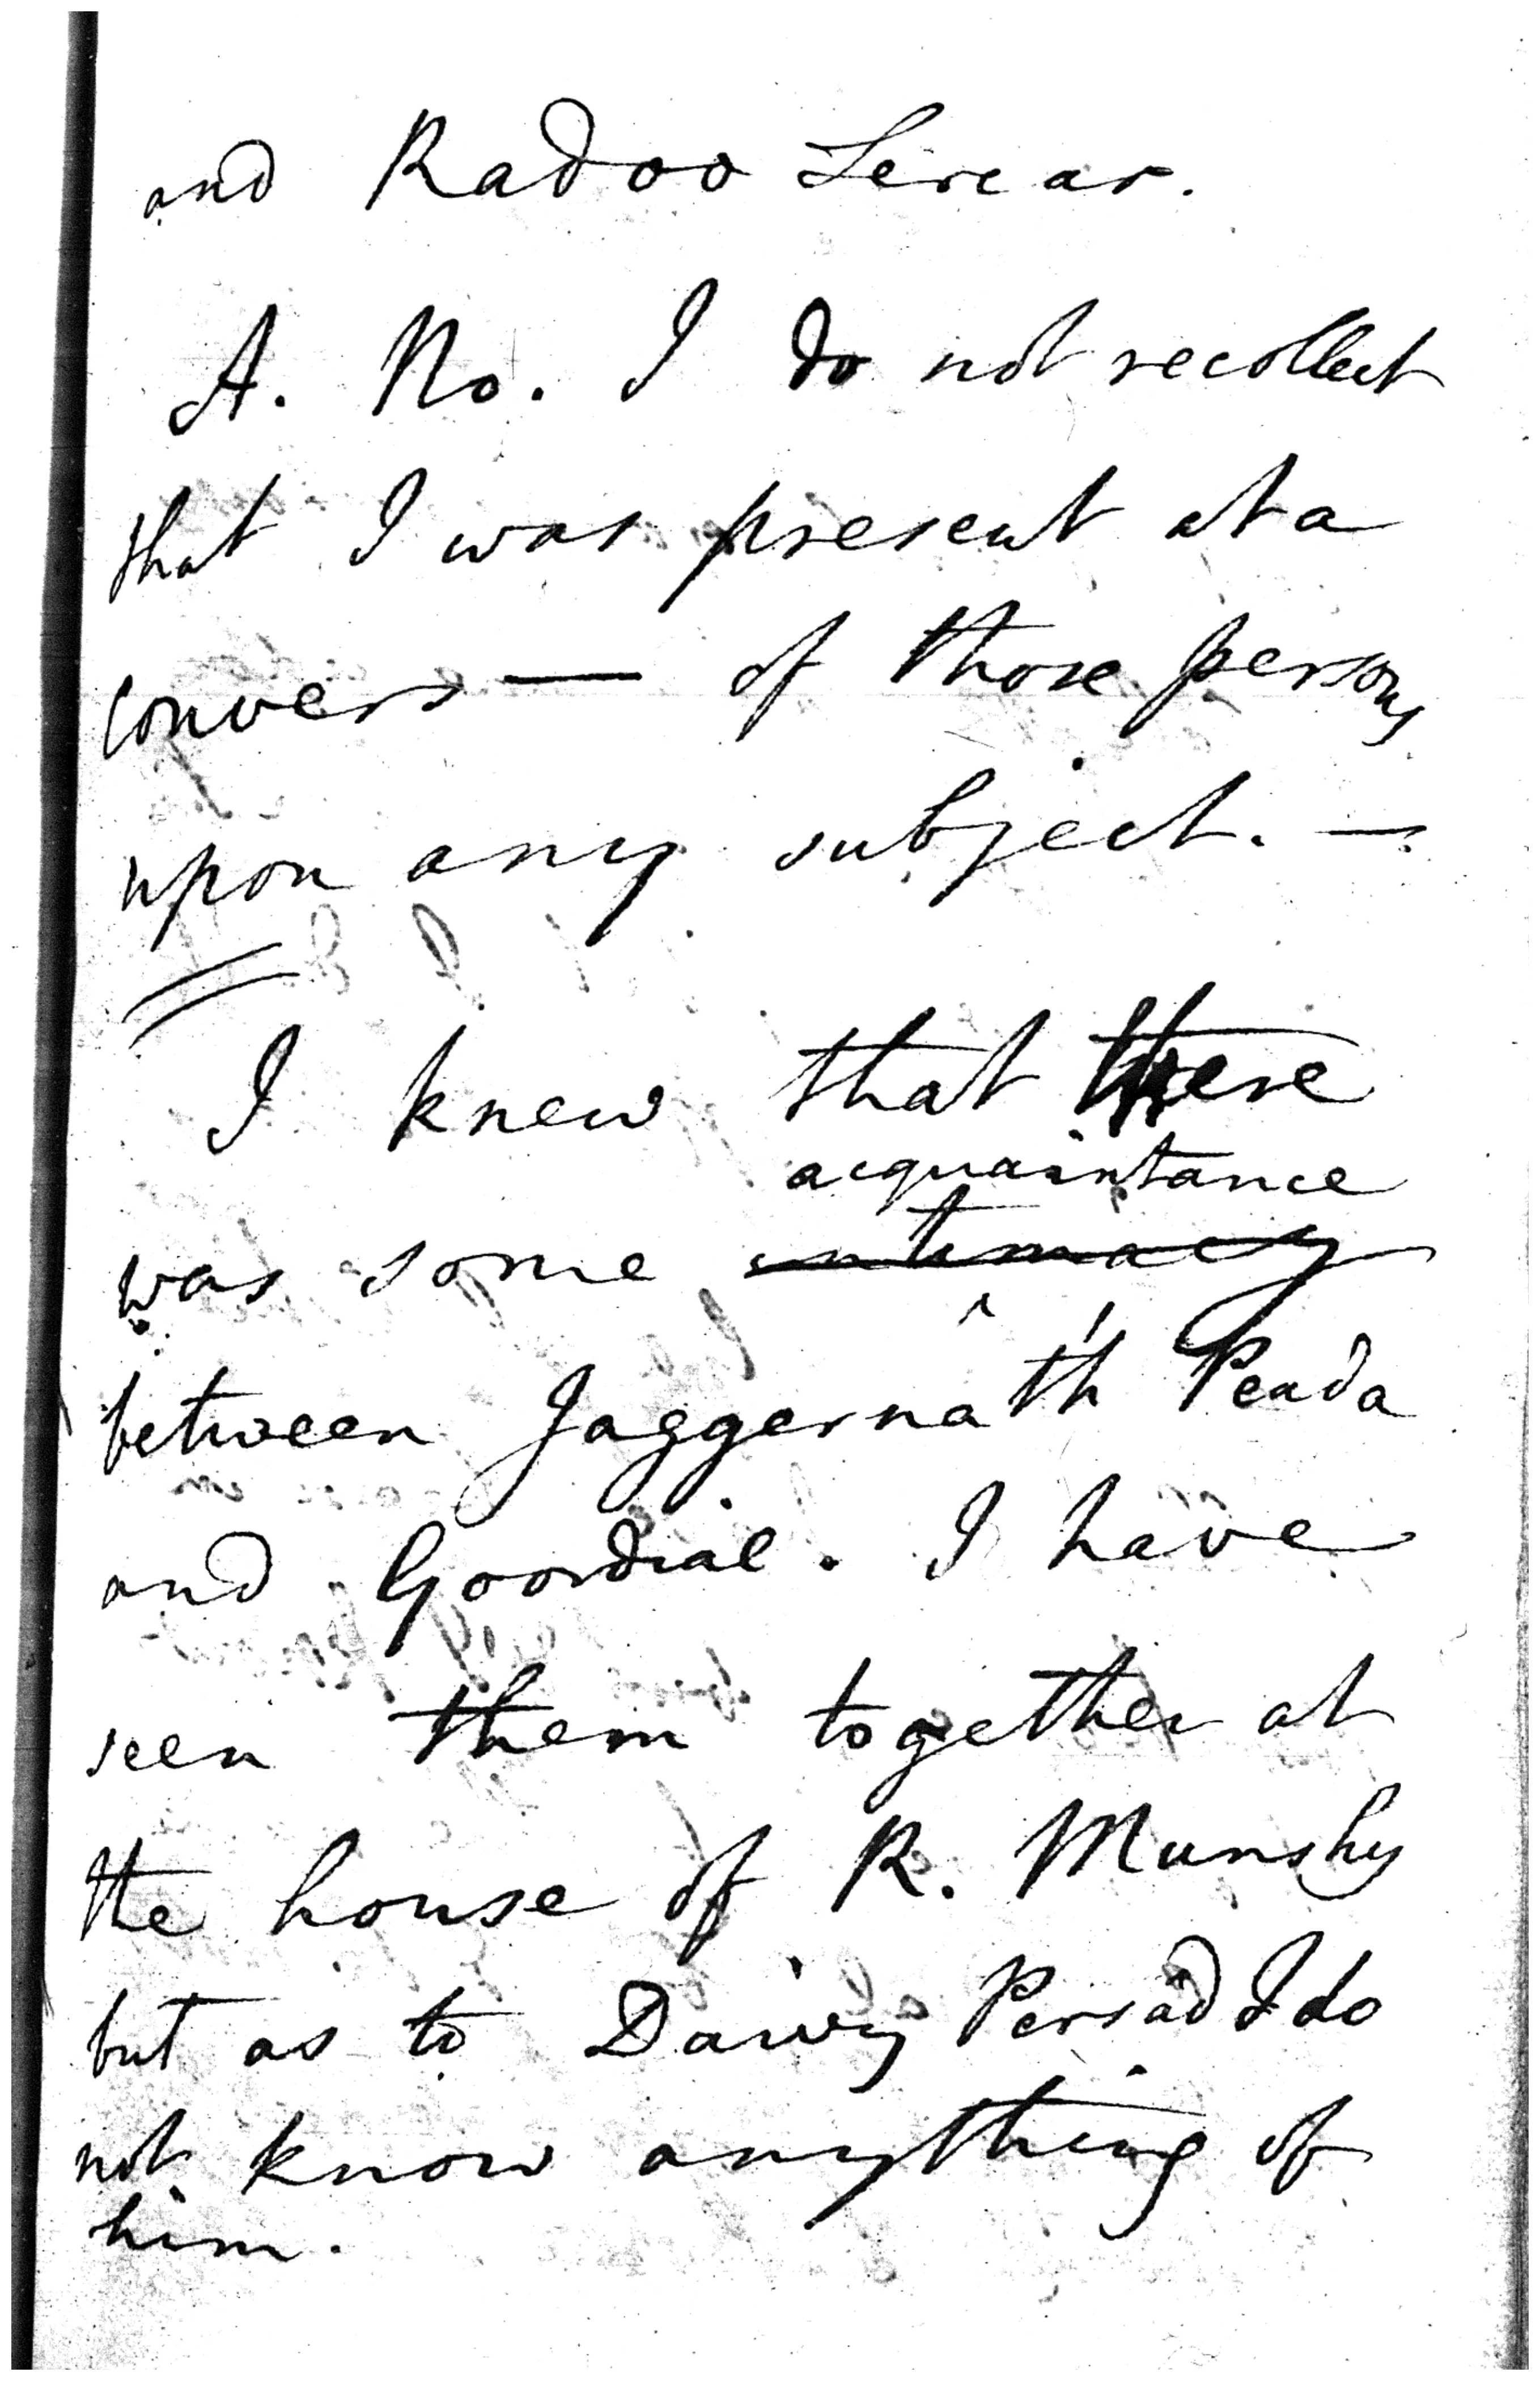 and Radoo Sercar.
A. No. I do not recollect
that I was present at a
convers— of those persons
upon any subject. —
I knew that there
acquaintance
was some intimacy
between Jaggernath Peada
and Goordial. I have
seen them together at
the house of R. Munshy
but as to Dawy Persad I do
not know anything of
him.